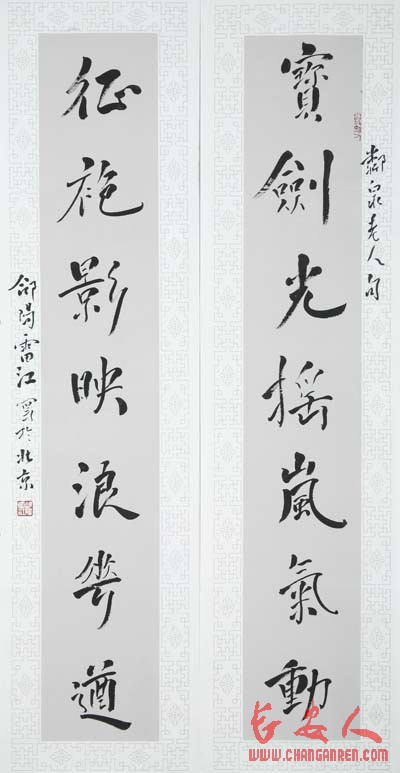 鄰泉老人句
寶劍光搖嵐氣動
征袍影映浪華遒
郃陽雷江寫於北京
长安人
WWW.CHANGANREN.COM